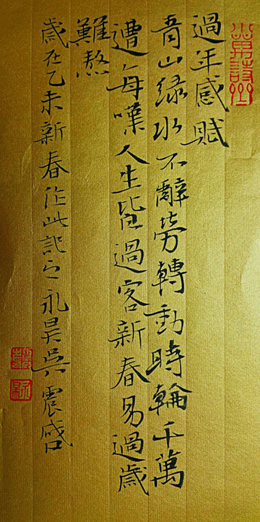 過年感賦
青山綠水不辭勞轉動時輪千萬
遭每嘆人生皆過客新春易過歲
難熬
歲在乙未新春作此記之永昊吳震啓